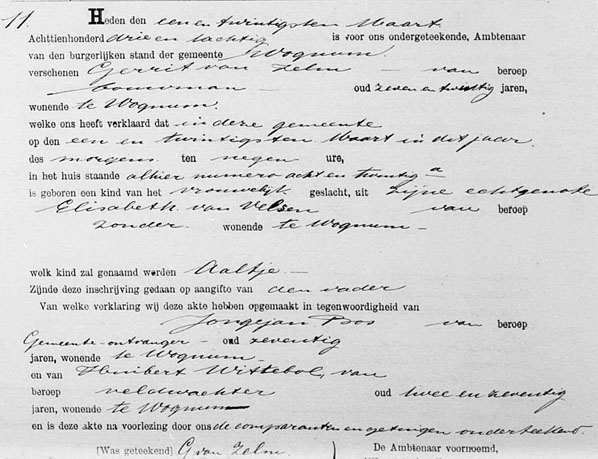 11. Heden den een en twintigsten Maart
Achttienhonderd drie en tachtig is voor ons ondergeteekende, Ambtenaar
van den burgerlijken stand der gemeente Wognum.
verschenen Gerrit van Zelm – van beroep
bouwman – oud zeven en twintig jaren,
wonende te Wognum.
welke ons heeft verklaard dat in deze gemeente
op den een en twintigsten Maart in dit jaar
des morgens ten negen ure,
in het huis staande alhier numero acht en twintig a
is geboren een kind van het vrouwelijk geslacht, uit zijne echtgenote
Elisabeth van Velsen van beroep
zonder wonende te Wognum –
welk kind zal genaamd worden Aaltje –
Zijnde deze inschrijving gedaan op aangifte van den vader
Van welke verklaring wij deze akte hebben opgemaakt in tegenwoordigheid van
Jongejan Bos van beroep
Gemeente-ontvanger – oud zeventig
jaren, wonende te Wognum –
en van Huibert Wittebol, van
beroep veldwachter oud twee en zeventig
jaren, wonende te Wognum
en is deze akte na voorlezing door ons de comparant en getuigen onderteekend.
[Was geteekend] G van Zelm. De Ambtenaar voornoemd,